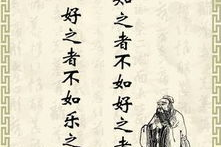 知之者不如好之者
好之者不如乐之